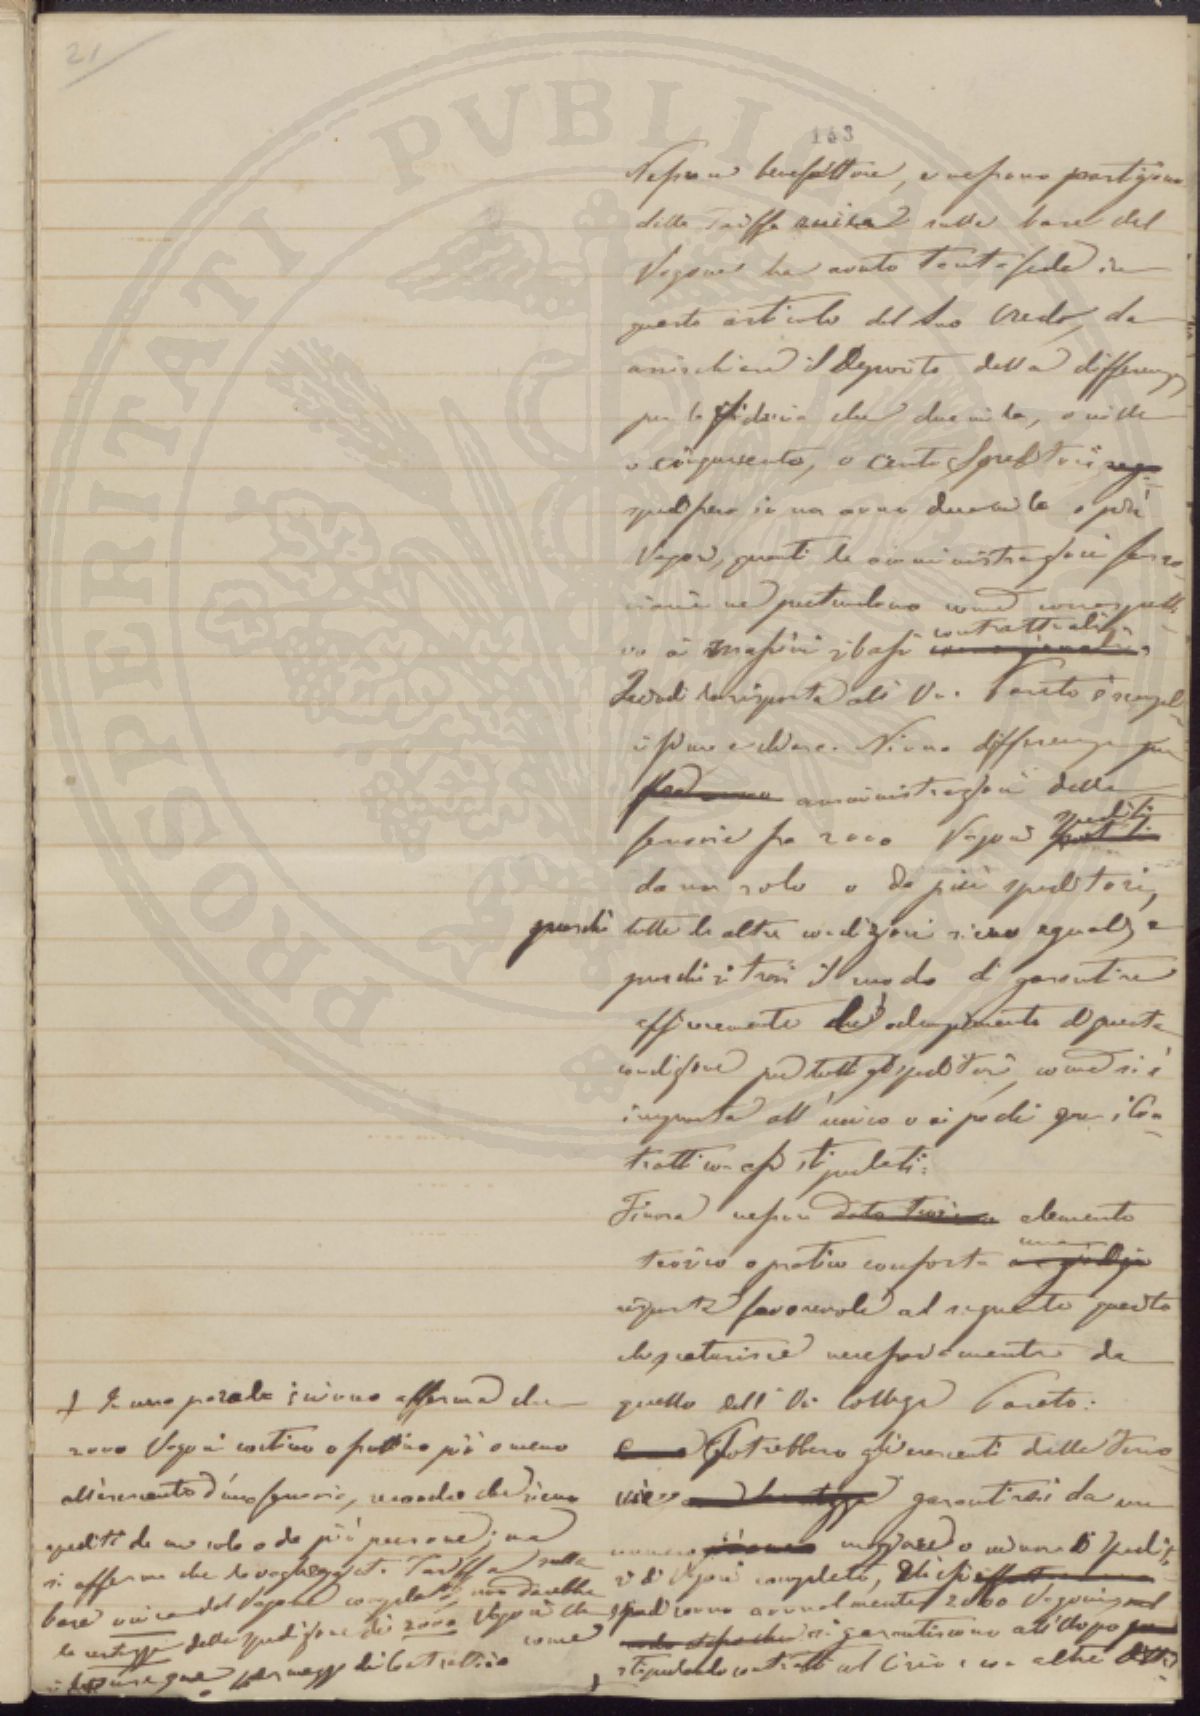 21
143
PROSPERITATI PVBLICAE
Nessun benefattore, e nessuno partigiano
della Tariffa unica sulla base del
Vagone ha avuto tanta fede in
questo articolo del suo Credo, da
arrischiare il Deposito della differenza
per la fiducia che duemila, o mille
o cinquecento, o cento Speditori
spedissero in un anno duemila o più
Vagoni, quanti le amministrazioni ferro-
viarie ne pretendono come corrispetti-
vo ai ribassi contrattuali
Quindi la risposta all' On. Pareto è sempli-
cissima e chiara. Niuna differenza per
amministrazioni delle
ferrovie fra 2000 Vagoni spediti
da un solo o da più speditori,
purchè tutte le altre condizioni sieno eguali, e
purchè si trovi il modo di garantire
efficacemente l'adempimento di questa
condizione per tutti gli speditori, come si è
imposta all' unico o ai pochi con i Con-
tratti con essi stipulati.
Finora nessun elemento
teorico o pratico conforta una
risposta favorevole al seguente quesito
che scaturisce necessariamente da
quello dell' On. Collega Pareto:
Potrebbero gli esercenti delle Ferro-
vie garantirsi da un
numero maggiore o minore di Spedito-
ri di Vagoni completi, che
spediranno annualmente 2000 Vagoni
si garantiscono all'uopo
stipulando contratti col Cirio e con altre Ditte
+ In una parola niuno afferma che
2000 Vagoni costino o fruttino più o meno
all'esercente d'una ferrovia, secondo che sieno
spediti da un solo o da più persone; ma
si afferma che la vagheggiata Tariffa sulla
base unica del Vagone completo, non darebbe
la certezza della spedizione di 2000 Vagoni che
come
si ottiene per mezzo di Contratti